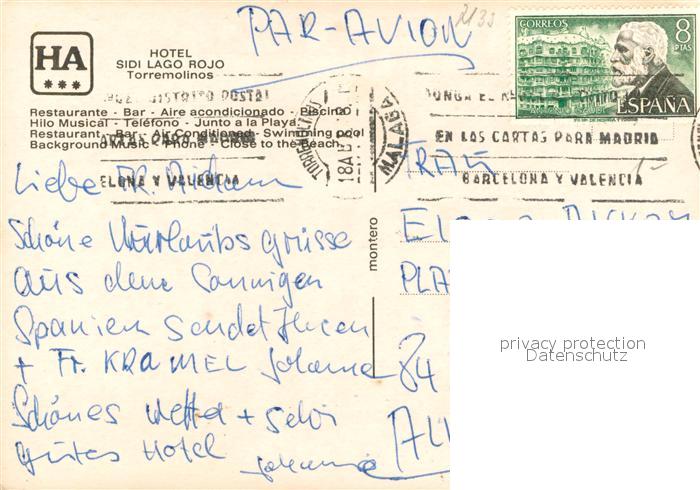 PAR-AVION
2133
CORREOS
8
PTAS
ESPAÑA
HA
HOTEL
SIDI LAGO ROJO
Torremolinos
Restaurante - Bar - Aire acondicionado - Piscina
Hilo Musical - Teléfono - Junto a la Playa
Restaurant - Bar - Air Conditioned - Swimming pool
Background Music - Phone - Close to the beach
DISTRITO POSTAL
ELONA Y VALENCIA
MALAGA
PONGA EL
EN LAS CARTAS PARA MADRID
BARCELONA Y VALENCIA
montero
Liebe
Schöne Urlaubsgrüsse
aus dem Sonnigen
Spanien sendet Ihnen
+ Fr. KRAMEL Johanna
Schönes Wetter + sehr
gutes Hotel
Johanna
FRAU
PLA
84
privacy protection
Datenschutz